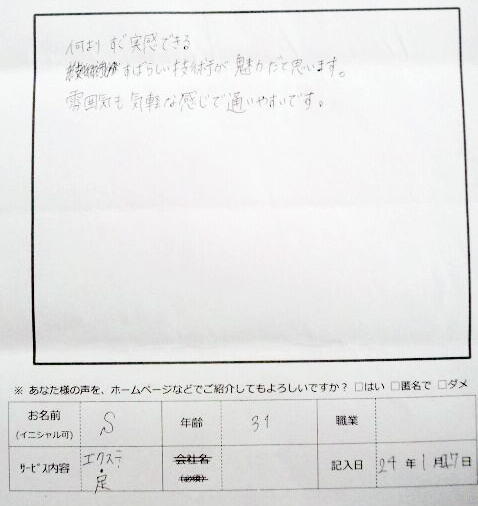 何より すぐ実感できる
すばらしい技術が魅力だと思います。
雰囲気も気軽な感じで通いやすいです。
※ あなた様の声を、ホームページなどでご紹介してもよろしいですか？ □はい □匿名で □ダメ
お名前 (イニシャル可) S 年齢 31 職業
サービス内容 エクステ・足 会社名 (必須) 記入日 24年1月27日